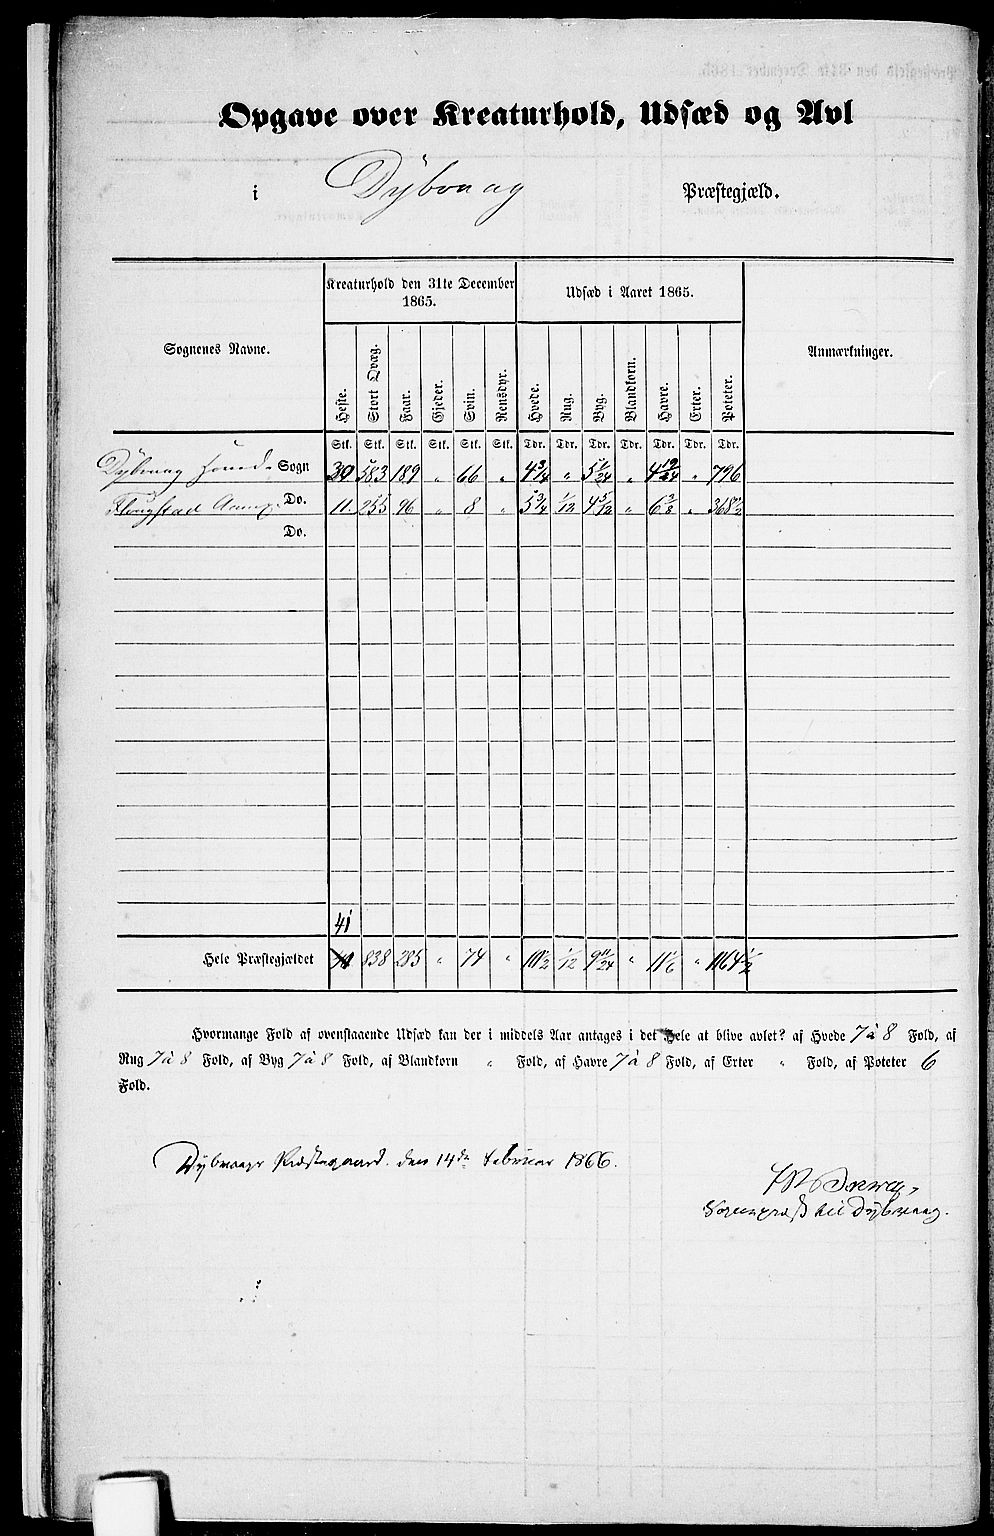 Opgave over Kreaturhold, Udsæd og Avl
i Dybvaag Præstegjæld.
Sognenes Navne. Kreaturhold den 31te December 1865. Udsæd i Aaret 1865. Anmærkninger.
Heste. Stort Qvæg. Faar. Gjeder. Svin. Rensdyr. Hvede. Rug. Byg. Blandkorn. Havre. Erter. Poteter.
Stk. Stk. Stk. Stk. Stk. Stk. Tdr. Tdr. Tdr. Tdr. Tdr. Tdr. Tdr.
Dybvaag Sogn 30 583 189 " 66 " " 5 1/24 " 4 19/24 " 796
Do. 11. 255 96 " 8 " 5 3/4 1/12 4 5/12 " 6 3/8 " 368 1/2
Do.
41
Hele Præstegjældet 838 285 " 74 " 1/12 9 11/24 " 11 1/6 " 1164 1/2
Hvormange Fold af ovenstaaende Udsæd kan der i middels Aar antages i det Hele at blive avlet? af Hvede 7 à 8 Fold, af
Rug 7 à 8 Fold, af Byg 7 à 8 Fold, af Blandkorn " Fold, af Havre 7 à 8 Fold, af Erter " Fold, af Poteter 6
Fold.
Dybvaags Præstegaard. den 14de Februar 1866.
Sognepræst til Dybvaag.